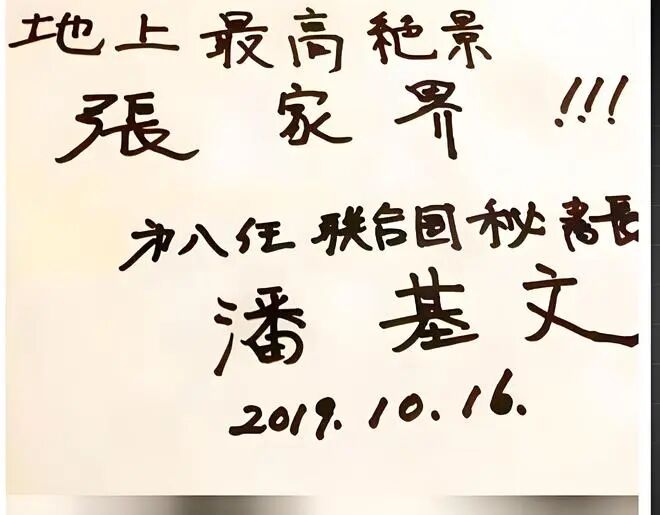 地上最高絶景
張家界!!!
第八任联合国秘書長
潘基文
2019.10.16.